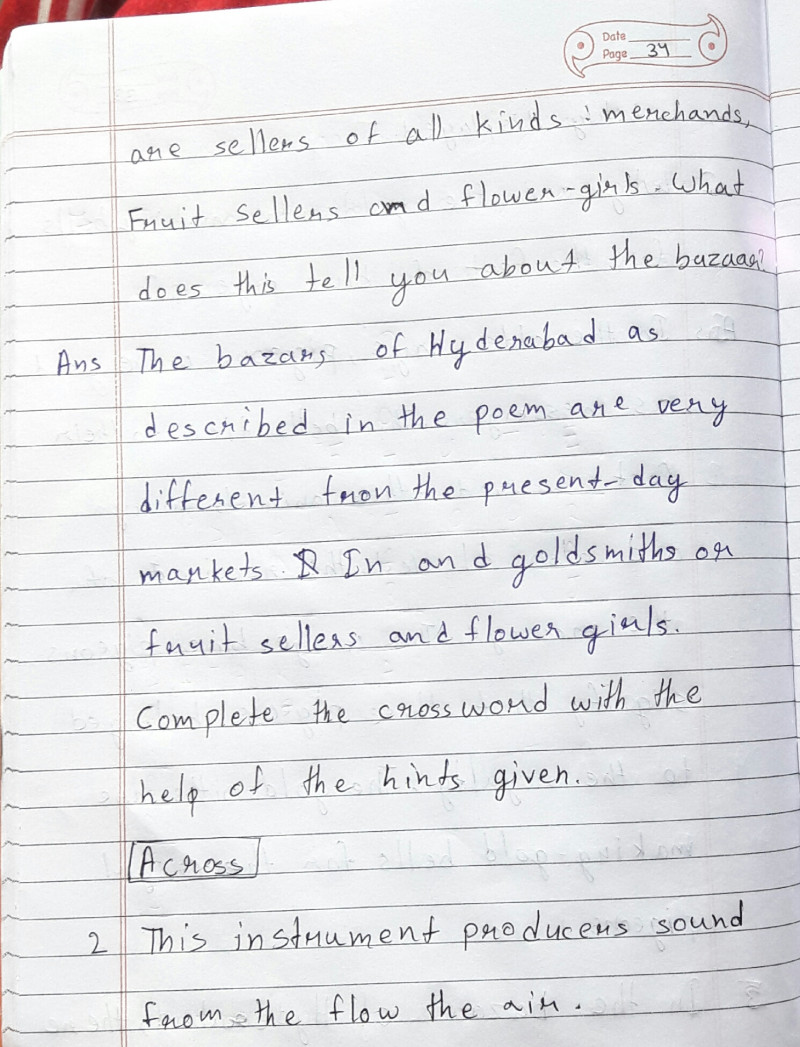 Date
Page 34
are sellers of all kinds : merchands,
Fruit sellers and flower-girls. What
does this tell you about the bazaar?
Ans The bazars of Hyderabad as
described in the poem are very
different fron the present-day
markets. In and goldsmiths or
fruit sellers and flower girls.
Complete the crossword with the
help of the hints given.
Across
2 This instrument producers sound
from the flow the air.